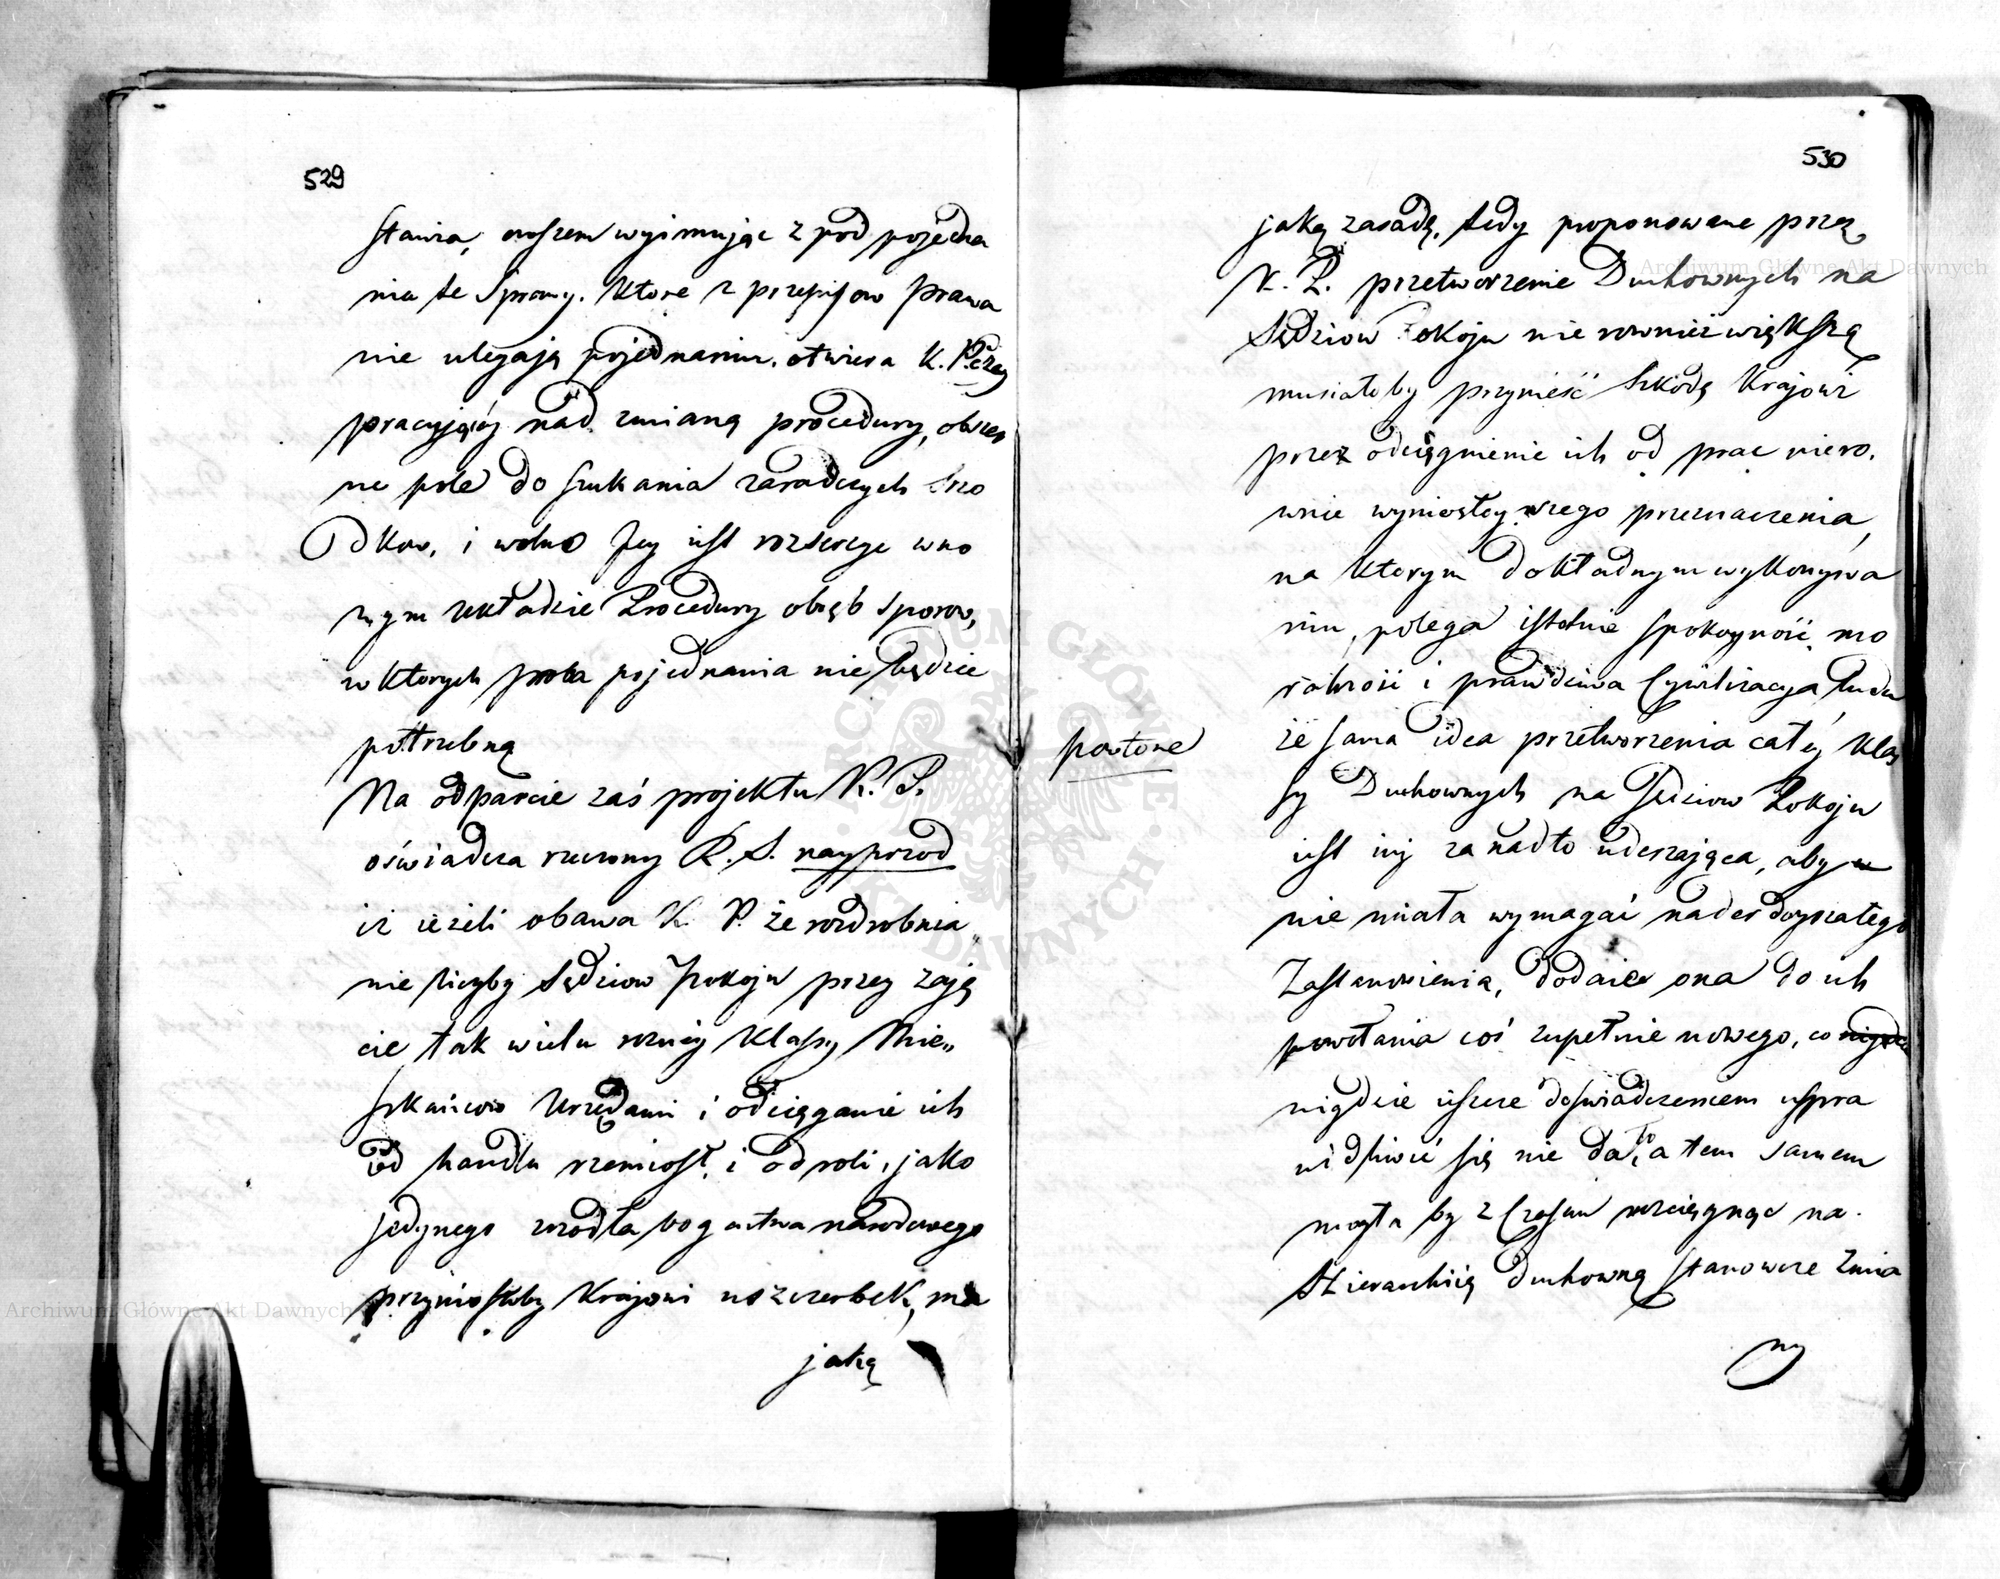 529
stawia, owszem wyimuiąc z pod pojedna
nia te sprawy, które z przepisow prawa
nie ulegają pojednaniu, otwiera K.
pracującéy nad zmianą procedury, obszer
ne pole do szukania zaradczych śro
dkow, i wolno Jey iest rozszerzyć w no
wym układzie Procedury obręb sporow,
w ktorych proba pojednania nie będzie
potrzebną
Na odparcie zaś projektu K. P.
oświadcza rzeczony R. S. nayprzod
iż ieżeli obawa K. P. że rozdrobnia„
nie liczby Sędziow Pokoju przez zaję
cie tak wielu rożnéy klassy Mie„
szkańcow Urzędami i odciąganie ich
od handlu rzemiosł, i od roli, jako
jedynego źrodła bogactwa narodowego
przyniosłoby Krajowi uszczerbek, ma
jaką
530
jaką zasadę, tedy proponowane przez
K. P. przetworzenie Duchownych na
Sędziow Pokoju nie rownież większą
musiałoby przynieść szkodę Krajowi
przez odciągnienie ich od prac niero„
wnie wyniosleyszego przeznaczenia,
na ktorym dokładnym wykonywa
niu, polega istotnie spokoyność, mo
ralność i prawdziwa Cywilizacya ludu
powtóre
że sama idea przetworzenia całéy klas
sy Duchownych na Sędziow Pokoju
iest iuż zanadto uderzająca, aby
nie miała wymagać nader doyrzałego
Zastanowienia, dodaie ona do ich
powołania coś zupełnie nowego, co
nigdzie ieszcze doświadczeniem uspra
wiedliwić się nie dało, a tem samem
mogła by z Czasem rozciągnąć na
Hierarchiią duchowną stanowcze zmia
ny
Archiwum Główne Akt Dawnych
Archiwum Główne Akt Dawnych
ARCHIWUM GŁÓWNE AKT DAWNYCH